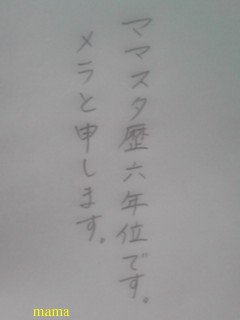 ママスタ歴六年位です。
メラと申します。
mama